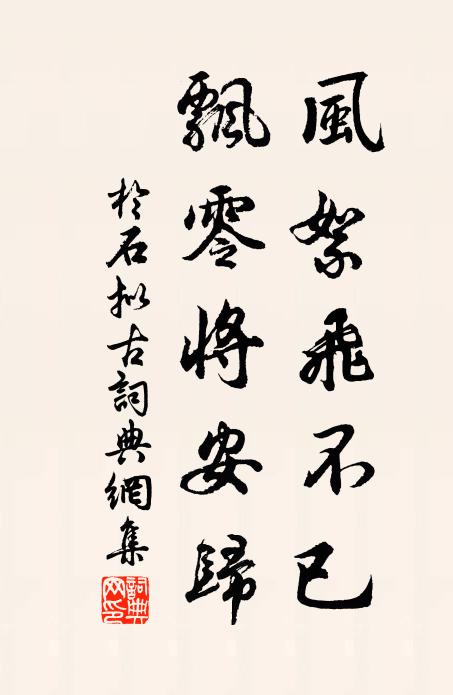 風絮飛不已
飄零將安歸
於石拟古詞典網集
詞典網印